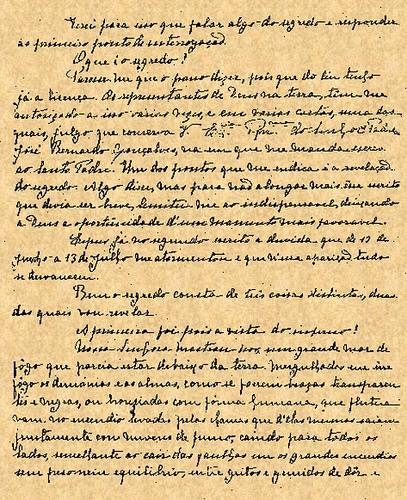 Terei para isso que falar algo do segredo e responder
ao primeiro ponto de interrogação.
O que é o segredo?
Parece-me que o posso dizer, pois que do Céu tenho
já a licença. Os representantes de Deus na terra, têm-me
autorizado a isso varias vezes, e em varias cartas, uma das
quais, julgo que conserva V. Ex.cia Rev.ma do Senhor Padre
José Bernardo Gonçalves, na em que me manda escrever
ao Santo Padre. Um dos pontos que me indica é a revelação
do segredo. Algo disse, mas para não alongar mais esse escrito
que devia ser breve, limitei-me ao indispensável, deixando
a Deus a oportunidade d'um momento mais favoravel.
Expus já no segundo escrito a duvida que de 13 de
Junho a 13 de Julho me atormentou e que n'essa aparição tudo
se desvaneceu.
Bem o segredo consta de três coisas distintas, duas
das quais vou revelar.
A primeira foi pois a vista do inferno!
Nossa Senhora mostrou-nos um grande mar de
fôgo que parecia estar debaixo da terra. Mergulhados em êsse
fôgo os demónios e as almas, como se fossem brasas transparen
tes e negras, ou bronziadas com forma humana, que flutua
vam no incendio levadas pelas chamas que d'elas mesmas saiam
juntamente com nuvens de fumo, caindo para todos os
lados, semelhante ao cair das faulhas em os grandes incendios
sem peso nem equilibrio, entre gritos e gemidos de dôr e